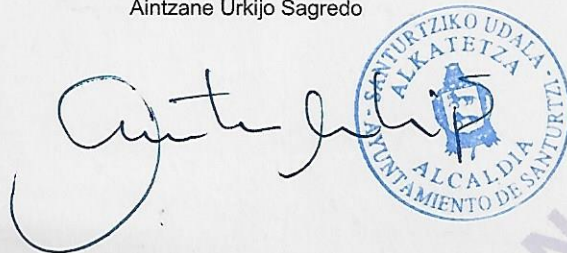 Aintzane Urkijo Sagredo
SANTURTZIKO UDALA - AYUNTAMIENTO DE SANTURTZI -
ALKATETZA
ALCALDIA